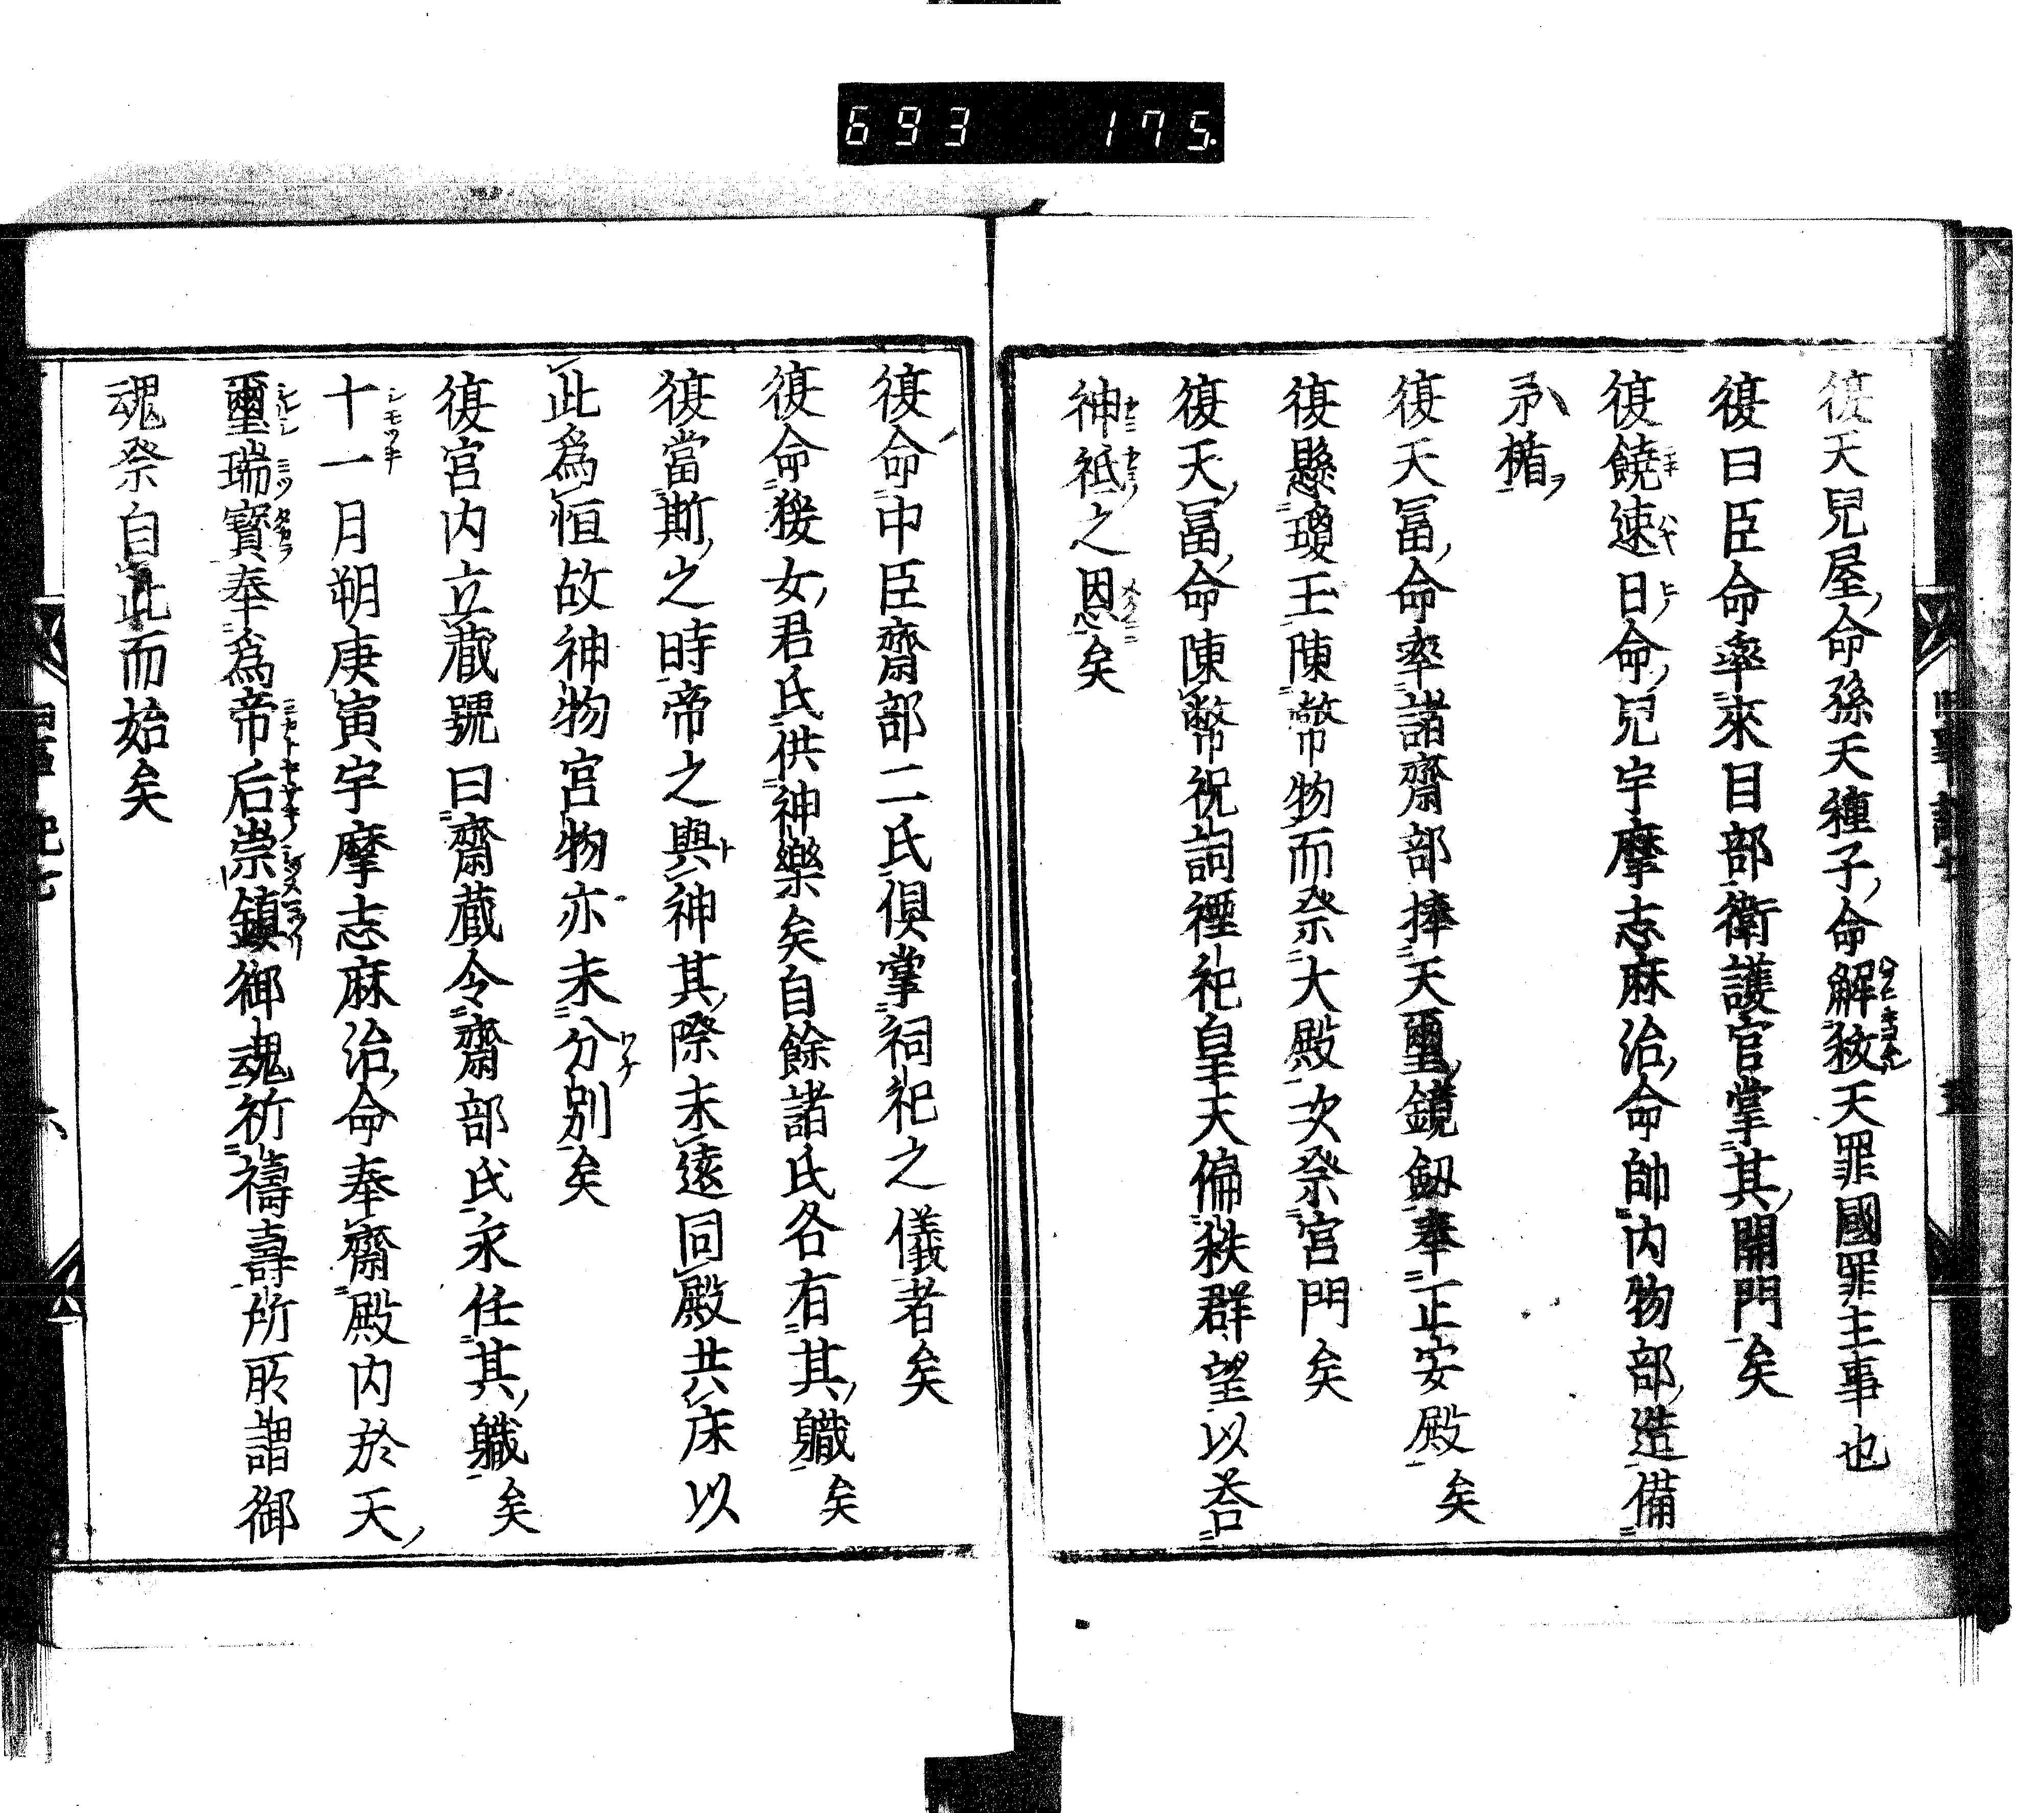 693 175
復天兒屋命孫天種子命解袚天罪國罪主事也
復曰臣命率來目部衛護官掌其開門矣
復饒速日命兒宇摩志麻治命帥内物部造備
矛楯
復天冨命率諸齋部捧天璽鏡劔奉正安殿矣
復懸瓊玉陳幣物而祭大殿次祭宮門矣
復天冨命陳幣祝詞禋祀皇天偏秩群望以荅
神祇之恩矣
復命中臣齋部二氏俱掌祠祀之儀者矣
復命猨女君氏供神樂矣自餘諸氏各有其軄矣
復當斯之時帝之與神其際未遠同殿共床以
此爲恒故神物宮物亦未分別矣
復宮内立藏號曰齋藏令齋部氏永任其軄矣
十一月朔庚寅宇摩志麻治命奉齋殿内於天
璽瑞寳奉爲帝后崇鎮御魂祈禱壽所所謂御
魂祭自此而始矣